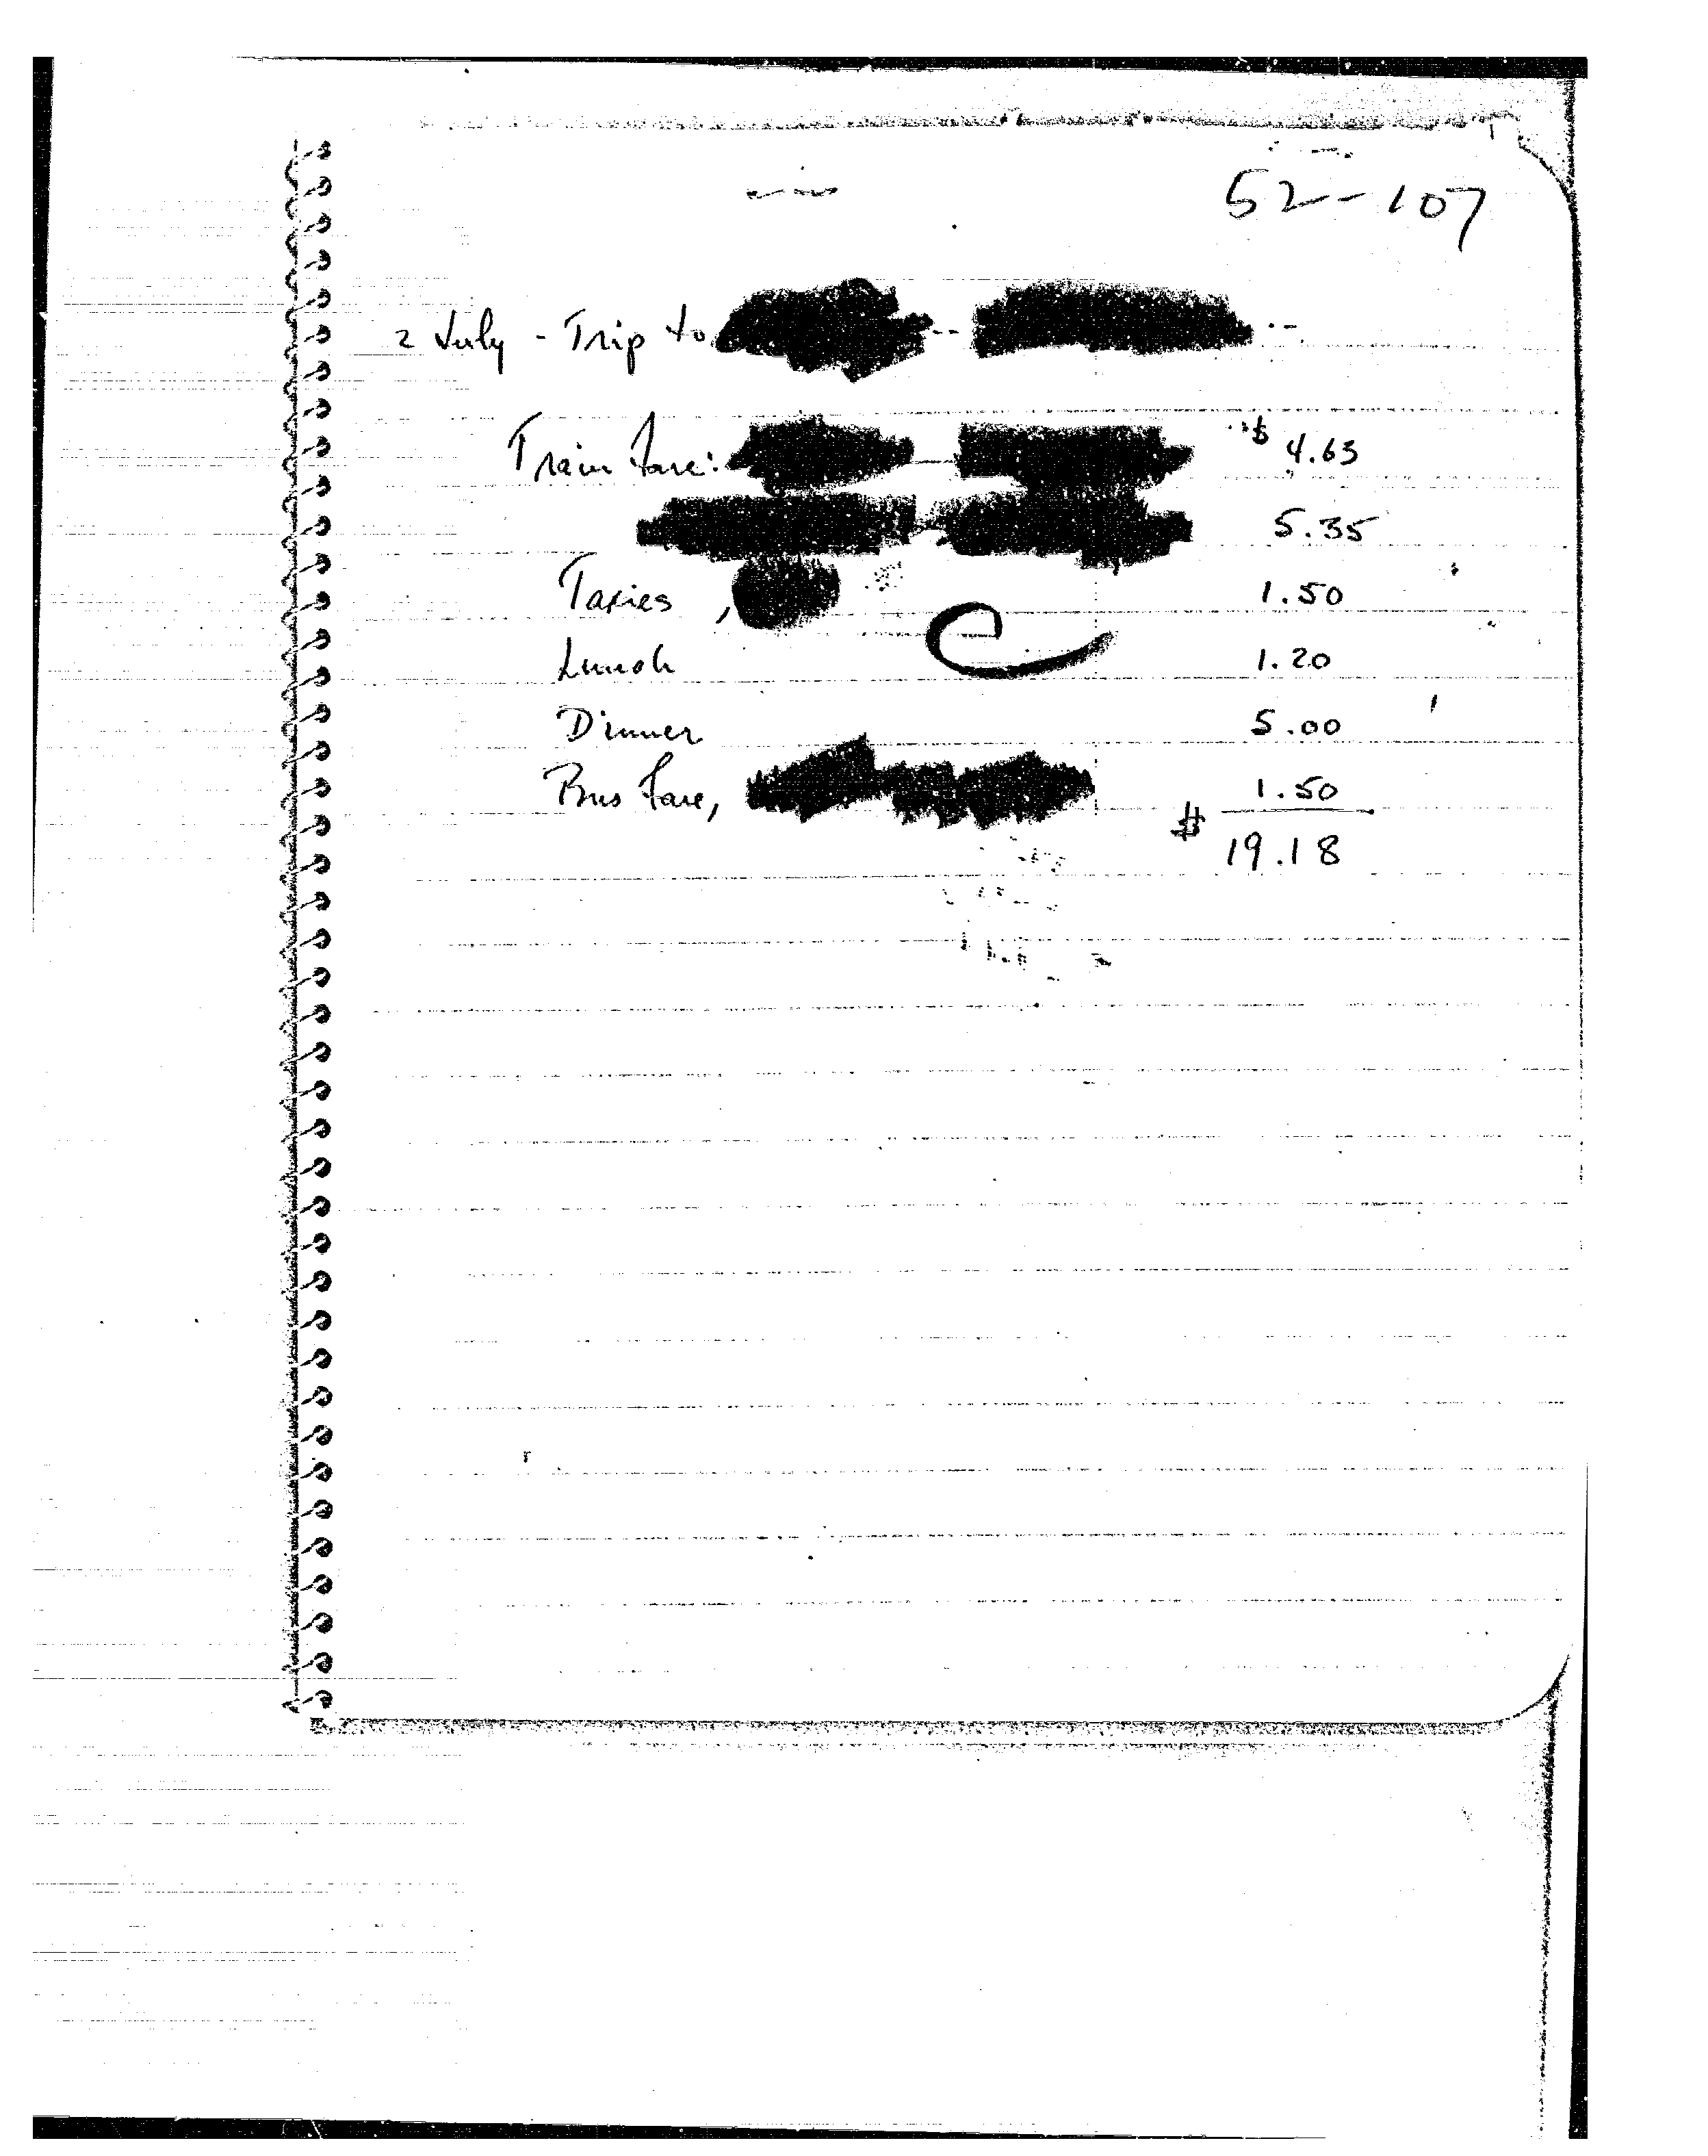 52-107
2 July - Trip to
Train fare: $ 4.63
5.35
Taxies, 1.50
Lunch 1.20
Dinner 5.00
Bus fare, 1.50
$ 19.18